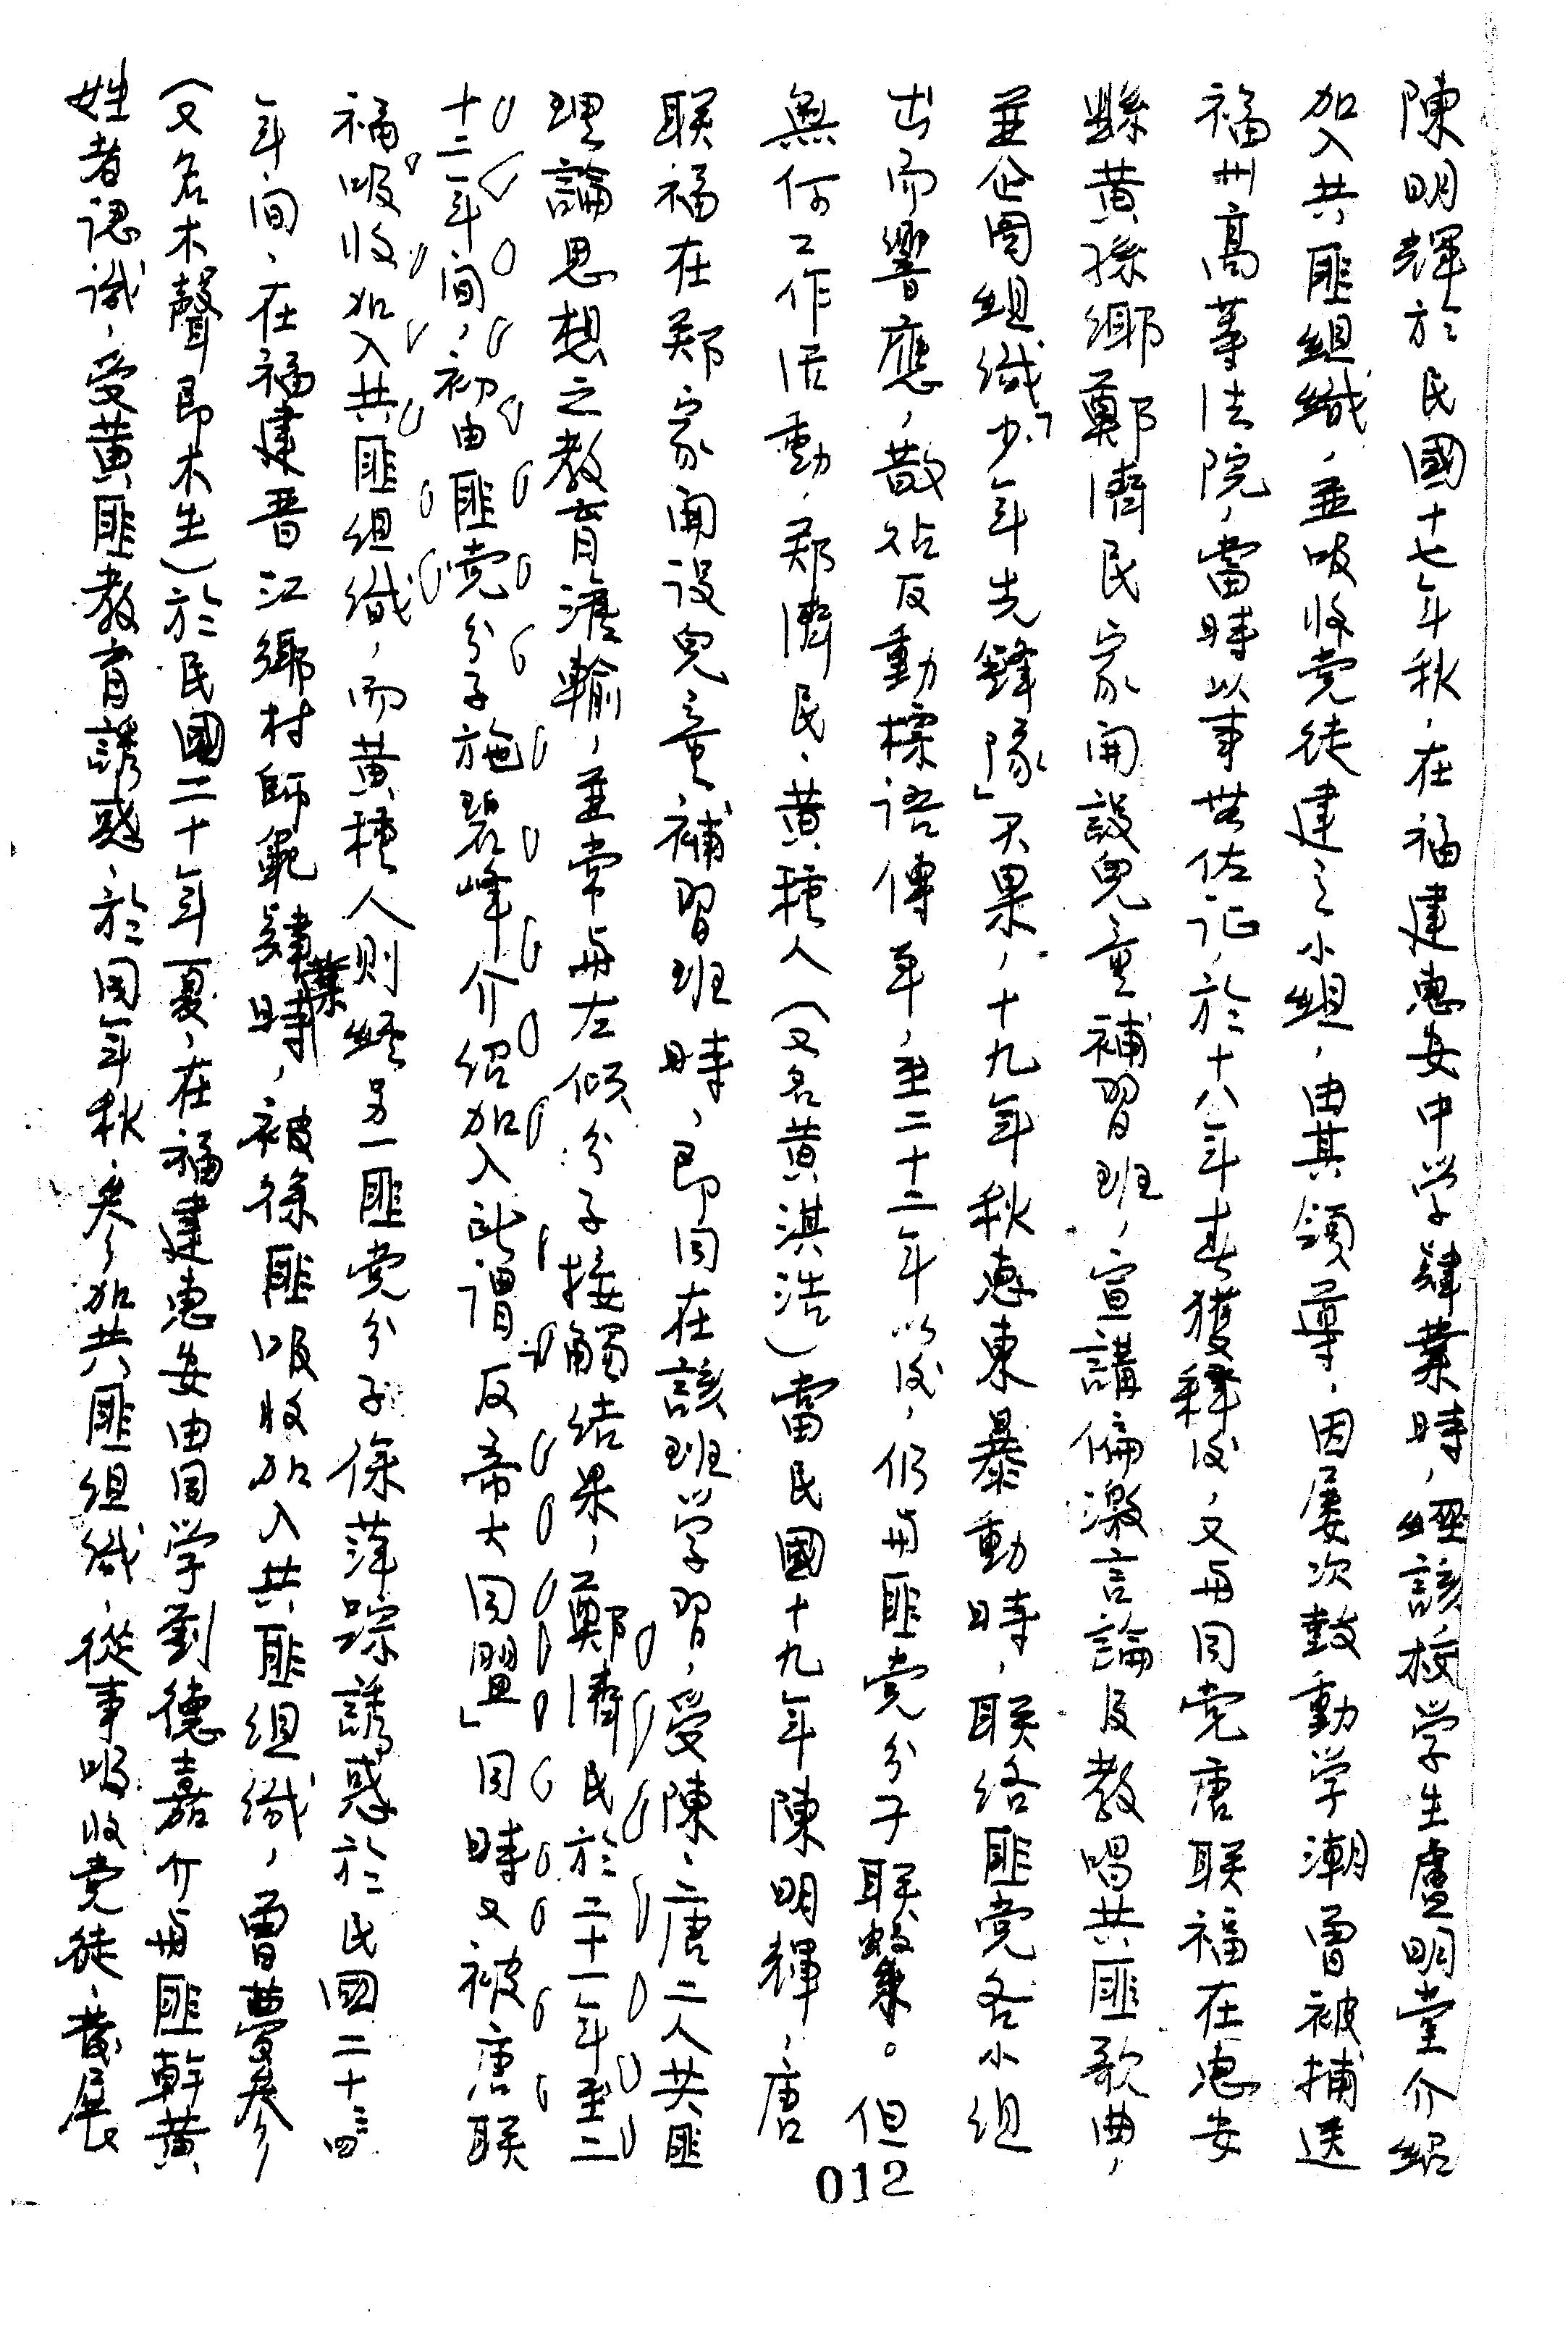 陳明輝於民國十七年秋，在福建惠安中学肄業時，經該校学生盧明堂介紹
加入共匪組織，並吸收党徒建立小組，由其領導，因屡次鼓動学潮曾被捕送
福州高等法院，當時以事無佐证，於十八年春獲释后，又与同党唐联福在惠安
縣黄孫鄉鄭濟民家開設兒童補習班，宣講偏激言論及教唱共匪歌曲，
並企圖組織「少年先鋒隊」不果，十九年秋惠東暴動時，联络匪党各小組
出而響應，散貼反動標语傳单，至二十二年以後，仍与匪党分子联繫。但
無何工作活動，郑濟民、黄穂人（又名黄淇浩）當民國十九年陳明輝，唐
联福在郑家開设兒童補習班時，即同在該班学習，受陳、唐二人共匪
理論思想之教育灌輸，並常与左倾分子接觸结果，鄭濟民於二十一年至二
十二年间，初由匪党分子施碧峰介绍加入所謂反帝大同盟」同時又被唐联
福吸收加入共匪组織，而黄穂人则經另一匪党分子徐萍踪誘惑於民國二十三四
年间，在福建晋江鄉村師範肄業時，被徐匪吸收加入共匪组織，曾夢参
（又名木聲即木生）於民國二十年夏，在福建惠安由同学劉德嘉介与匪幹黄
姓者認識，受黄匪教育誘惑，於同年秋，参加共匪组織，從事吸收党徒，發展
012